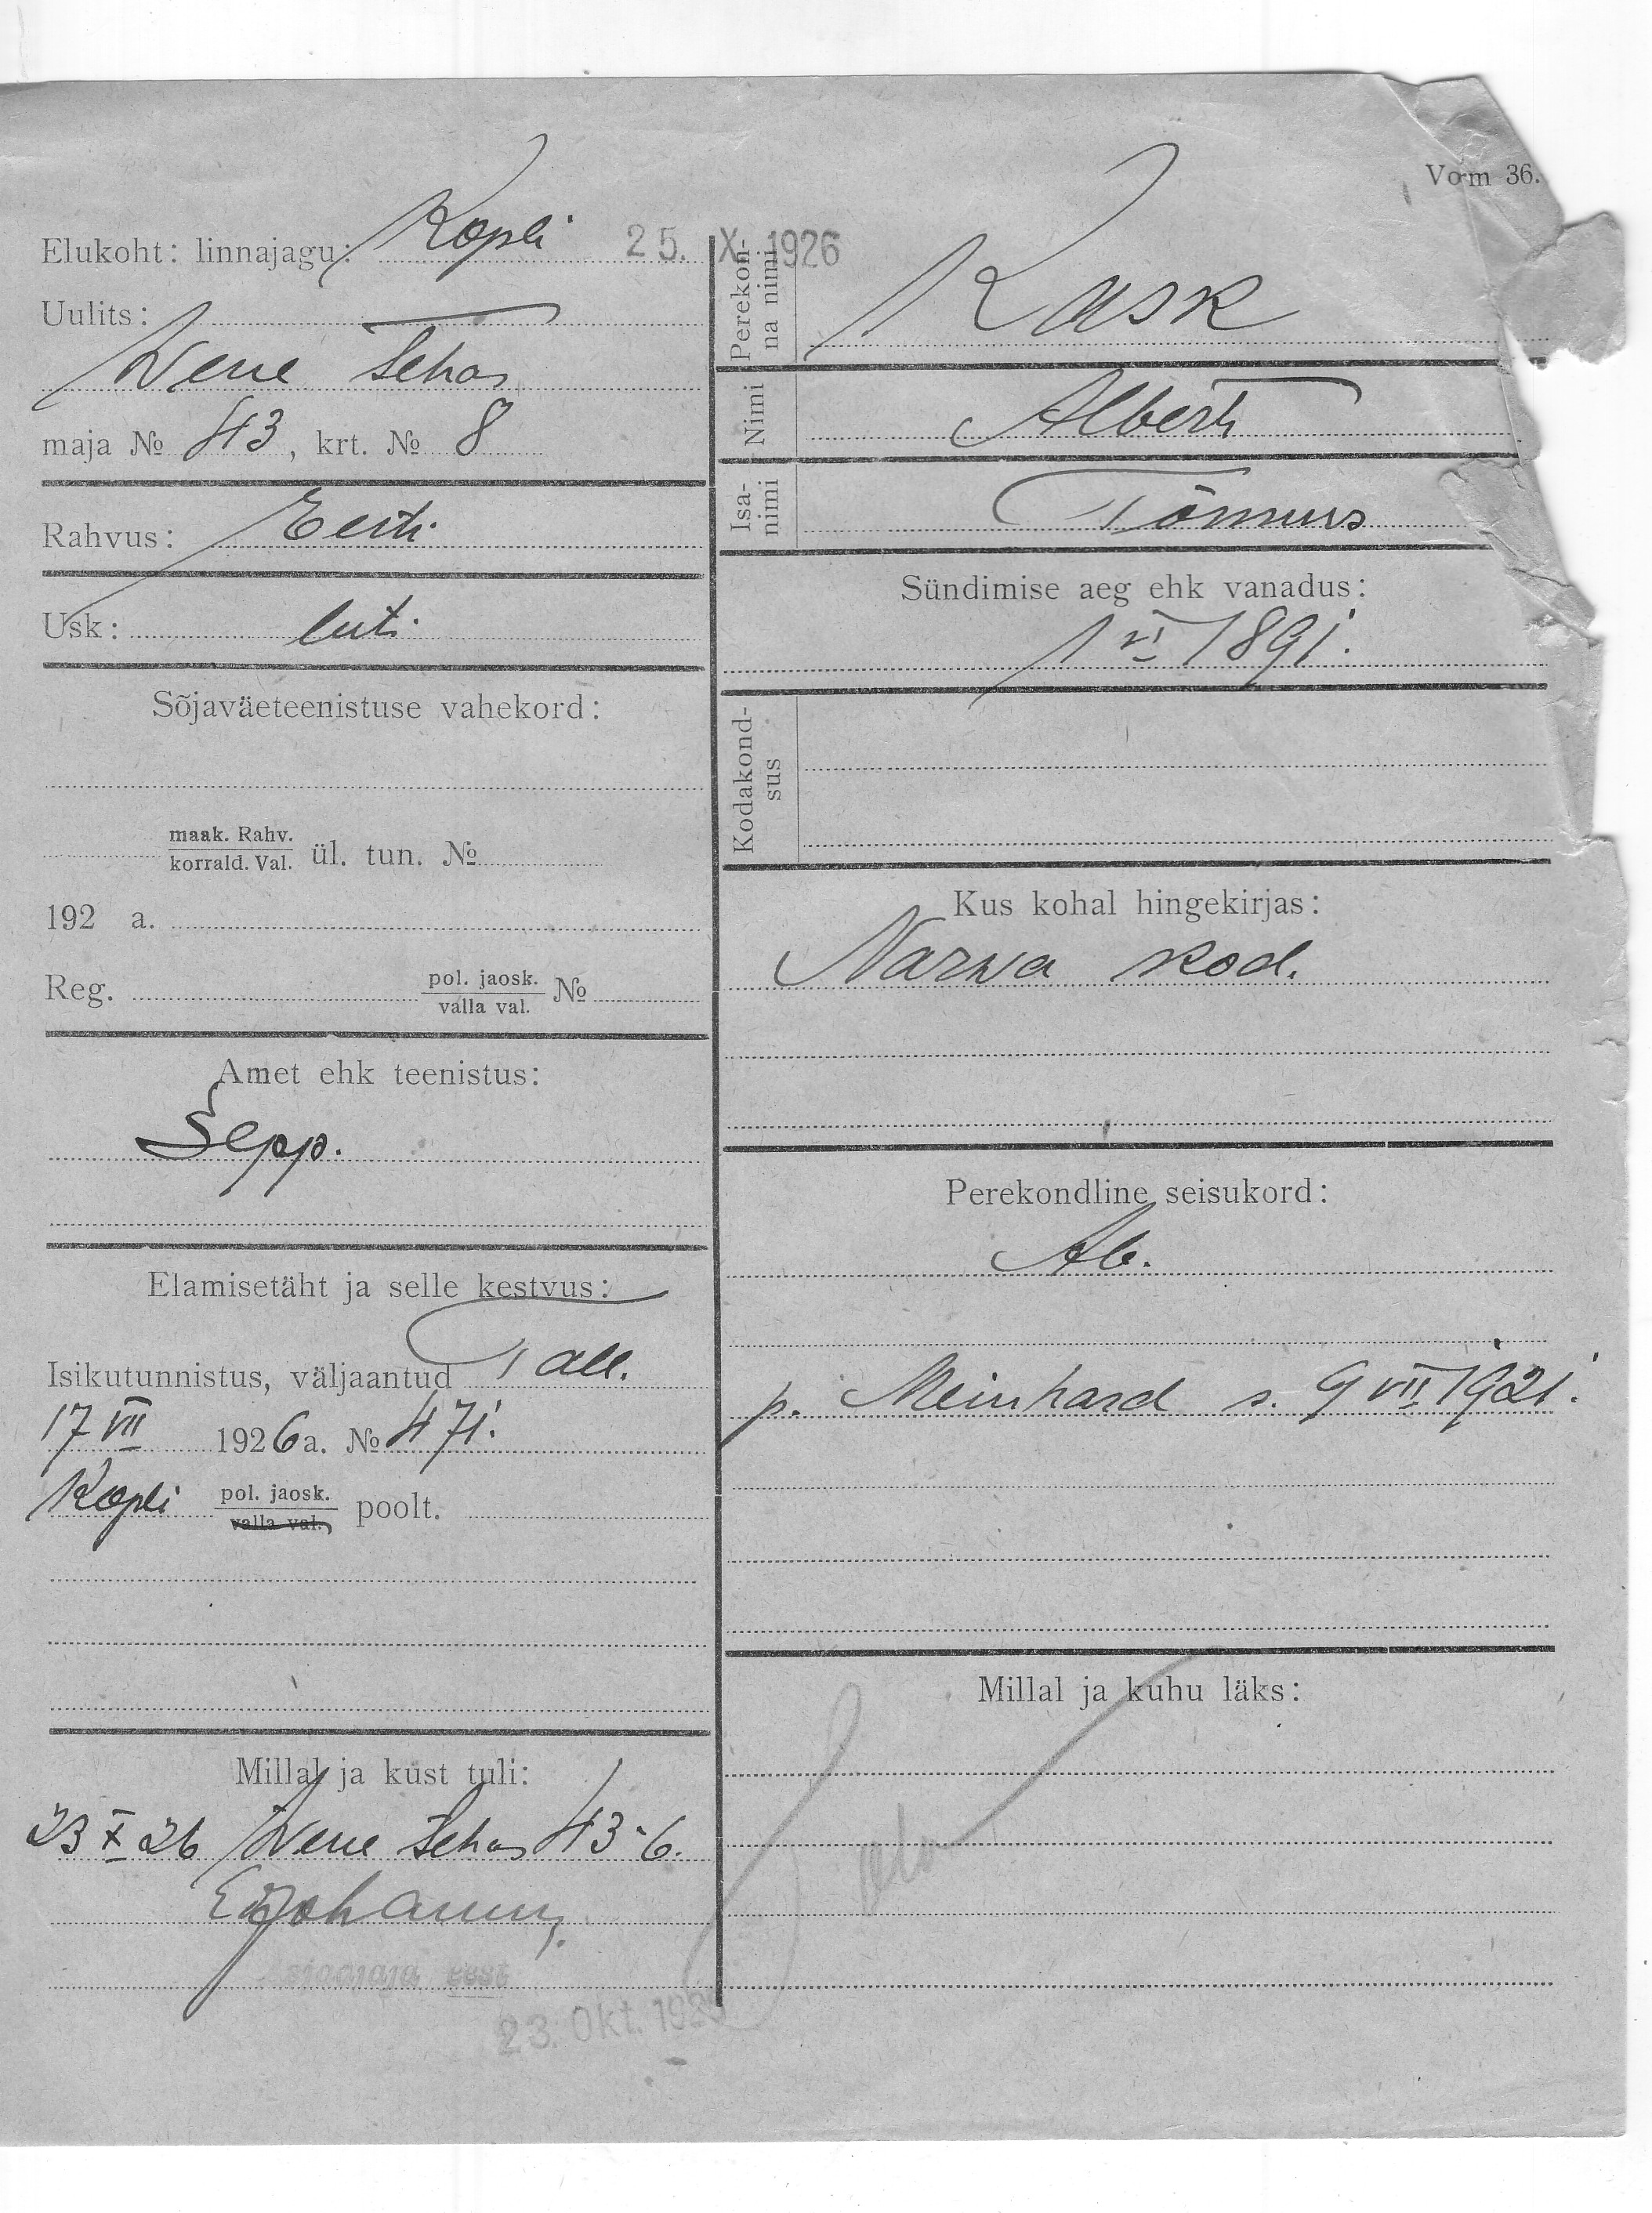 Vorm 36.
Elukoht: linnajagu: Kopli
25. X. 1926
Uulits:
Wene Tehas
maja № 43, krt. № 8
Rahvus: Eesti
Usk: lut.
Sõjaväeteenistuse vahekord:
maak. Rahv.
korrald. Val. ül. tun. №
192 a.
Reg. pol. jaosk.
valla val. №
Amet ehk teenistus:
Sepp.
Elamisetäht ja selle kestvus:
Isikutunnistus, väljaantud Tall.
17 VII 1926 a. № 471.
Kopli pol. jaosk.
valla val. poolt.
Millal ja kust tuli:
23 X 26 Wene Tehas 43-6.
Asjaajaja eest
23. Okt. 1926
Perekon-
na nimi Kask
Nimi Albert
Isa-
nimi Tõnnus
Sündimise aeg ehk vanadus:
1 VI 1891.
Kodakond-
sus
Kus kohal hingekirjas:
Narwa kod.
Perekondline seisukord:
Ab.
p. Meinhard s. 9 VII 1921.
Millal ja kuhu läks: